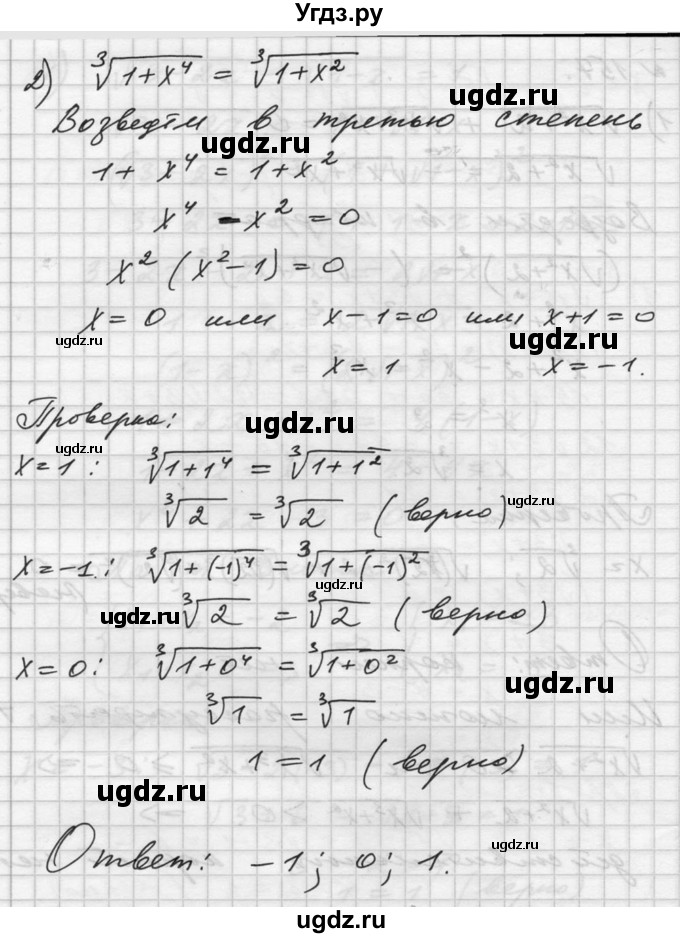 Угдз.ру
2) ∛(1+x⁴) = ∛(1+x²)
ugdz.ru
Возведём в третью степень
ugdz.ru
1+x⁴ = 1+x²
x⁴ - x² = 0
x² (x²-1) = 0
x = 0 или x-1=0 или x+1=0
ugdz.ru ugdz.ru
x = 1 x = -1.
Проверка:
ugdz.ru
ugdz.ru
x=1: ∛(1+1⁴) = ∛(1+1²)
ugdz.ru
∛2 = ∛2 (верно)
x=-1.: ∛(1+(-1)⁴) = ∛(1+(-1)²)
ugdz.ru
ugdz.ru
∛2 = ∛2 (верно)
x=0: ∛(1+0⁴) = ∛(1+0²)
ugdz.ru
∛1 = ∛1
1=1 (верно)
ugdz.ru
ugdz.ru
Ответ: -1; 0; 1.
ugdz.ru